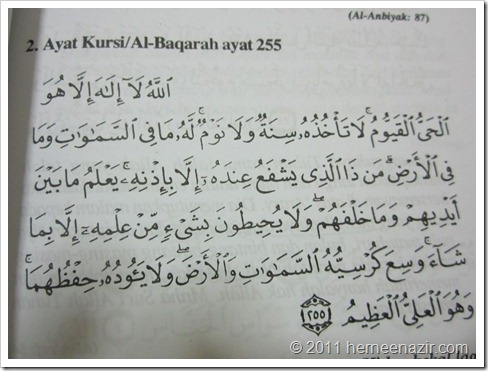 (Al-Anbiyak: 87)
2. Ayat Kursi/Al-Baqarah ayat 255
ٱللَّهُ لَآ إِلَٰهَ إِلَّا هُوَ
ٱلْحَىُّ ٱلْقَيُّومُ ۚ لَا تَأْخُذُهُۥ سِنَةٌ وَلَا نَوْمٌ ۚ لَّهُۥ مَا فِى ٱلسَّمَٰوَٰتِ وَمَا
فِى ٱلْأَرْضِ ۗ مَن ذَا ٱلَّذِى يَشْفَعُ عِندَهُۥٓ إِلَّا بِإِذْنِهِۦ ۚ يَعْلَمُ مَا بَيْنَ
أَيْدِيهِمْ وَمَا خَلْفَهُمْ ۖ وَلَا يُحِيطُونَ بِشَىْءٍ مِّنْ عِلْمِهِۦٓ إِلَّا بِمَا
شَآءَ ۚ وَسِعَ كُرْسِيُّهُ ٱلسَّمَٰوَٰتِ وَٱلْأَرْضَ ۖ وَلَا يَـُٔودُهُۥ حِفْظُهُمَا ۚ
وَهُوَ ٱلْعَلِىُّ ٱلْعَظِيمُ ٢٥٥
© 2011 hemeenazir.com